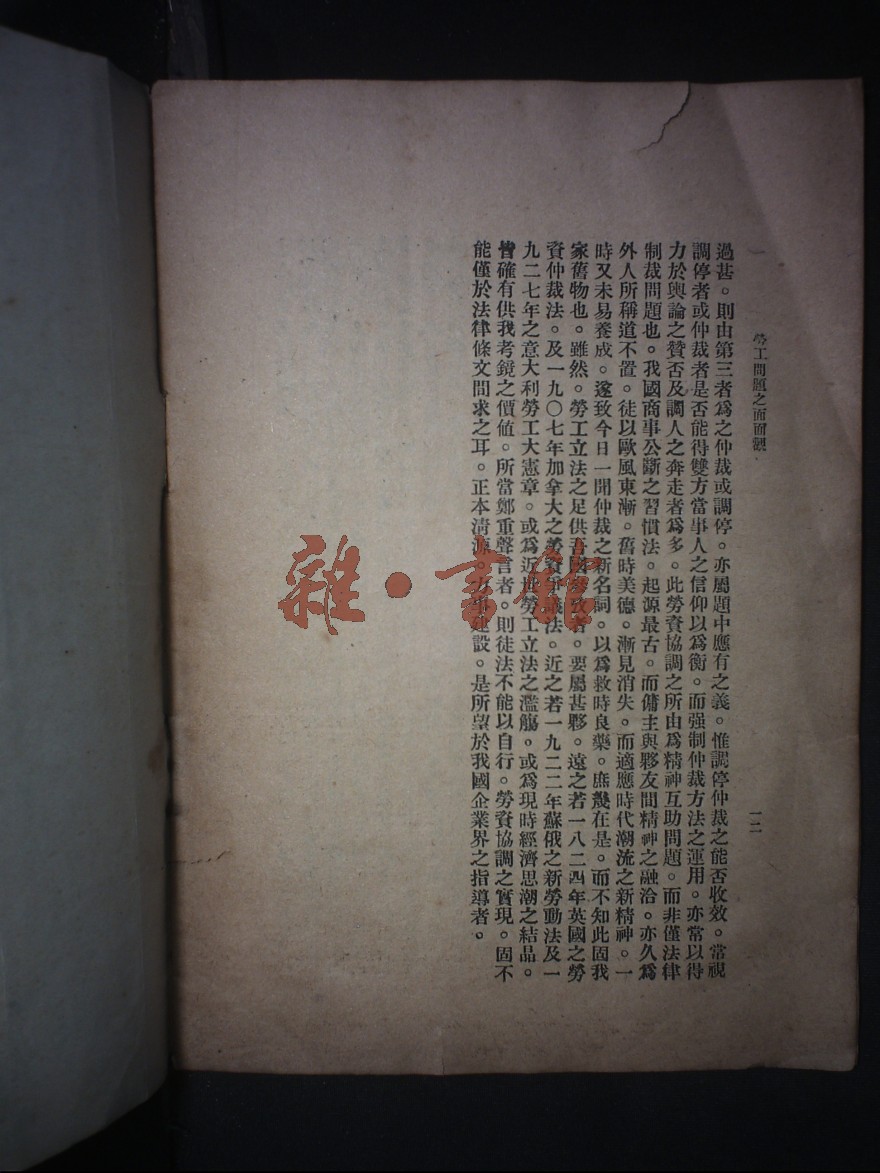 勞工問題之面面觀
一二
過甚。則由第三者爲之仲裁或調停。亦屬題中應有之義。惟調停仲裁之能否收效。常視
調停者或仲裁者是否能得雙方當事人之信仰以爲衡。而强制仲裁方法之運用。亦常以得
力於輿論之贊否及調人之奔走者爲多。此勞資協調之所由爲精神互助問題。而非僅法律
制裁問題也。我國商事公斷之習慣法。起源最古。而傭主與夥友間精神之融洽。亦久爲
外人所稱道不置。徒以歐風東漸。舊時美德。漸見消失。而適應時代潮流之新精神。一
時又未易養成。遂致今日一聞仲裁之新名詞。以爲救時良藥。庶幾在是。而不知此固我
家舊物也。雖然。勞工立法之足供吾國參攷者。要屬甚夥。遠之若一八二四年英國之勞
資仲裁法。及一九〇七年加拿大之勞資爭議法。近之若一九二二年蘇俄之新勞動法及一
九二七年之意大利勞工大憲章。或爲近世勞工立法之濫觴。或爲現時經濟思潮之結晶。
皆確有供我考鏡之價値。所當鄭重聲言者。則徒法不能以自行。勞資協調之實現。固不
能僅於法律條文間求之耳。正本淸源。力事建設。是所望於我國企業界之指導者。
雜·書館